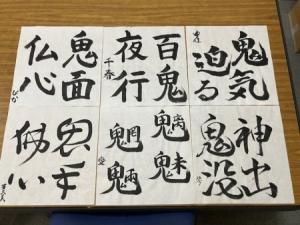 鬼気
迫る
百鬼
夜行
千春
鬼面
仏心
神出
鬼没
魑魅
魍魎
鬼手
佛心